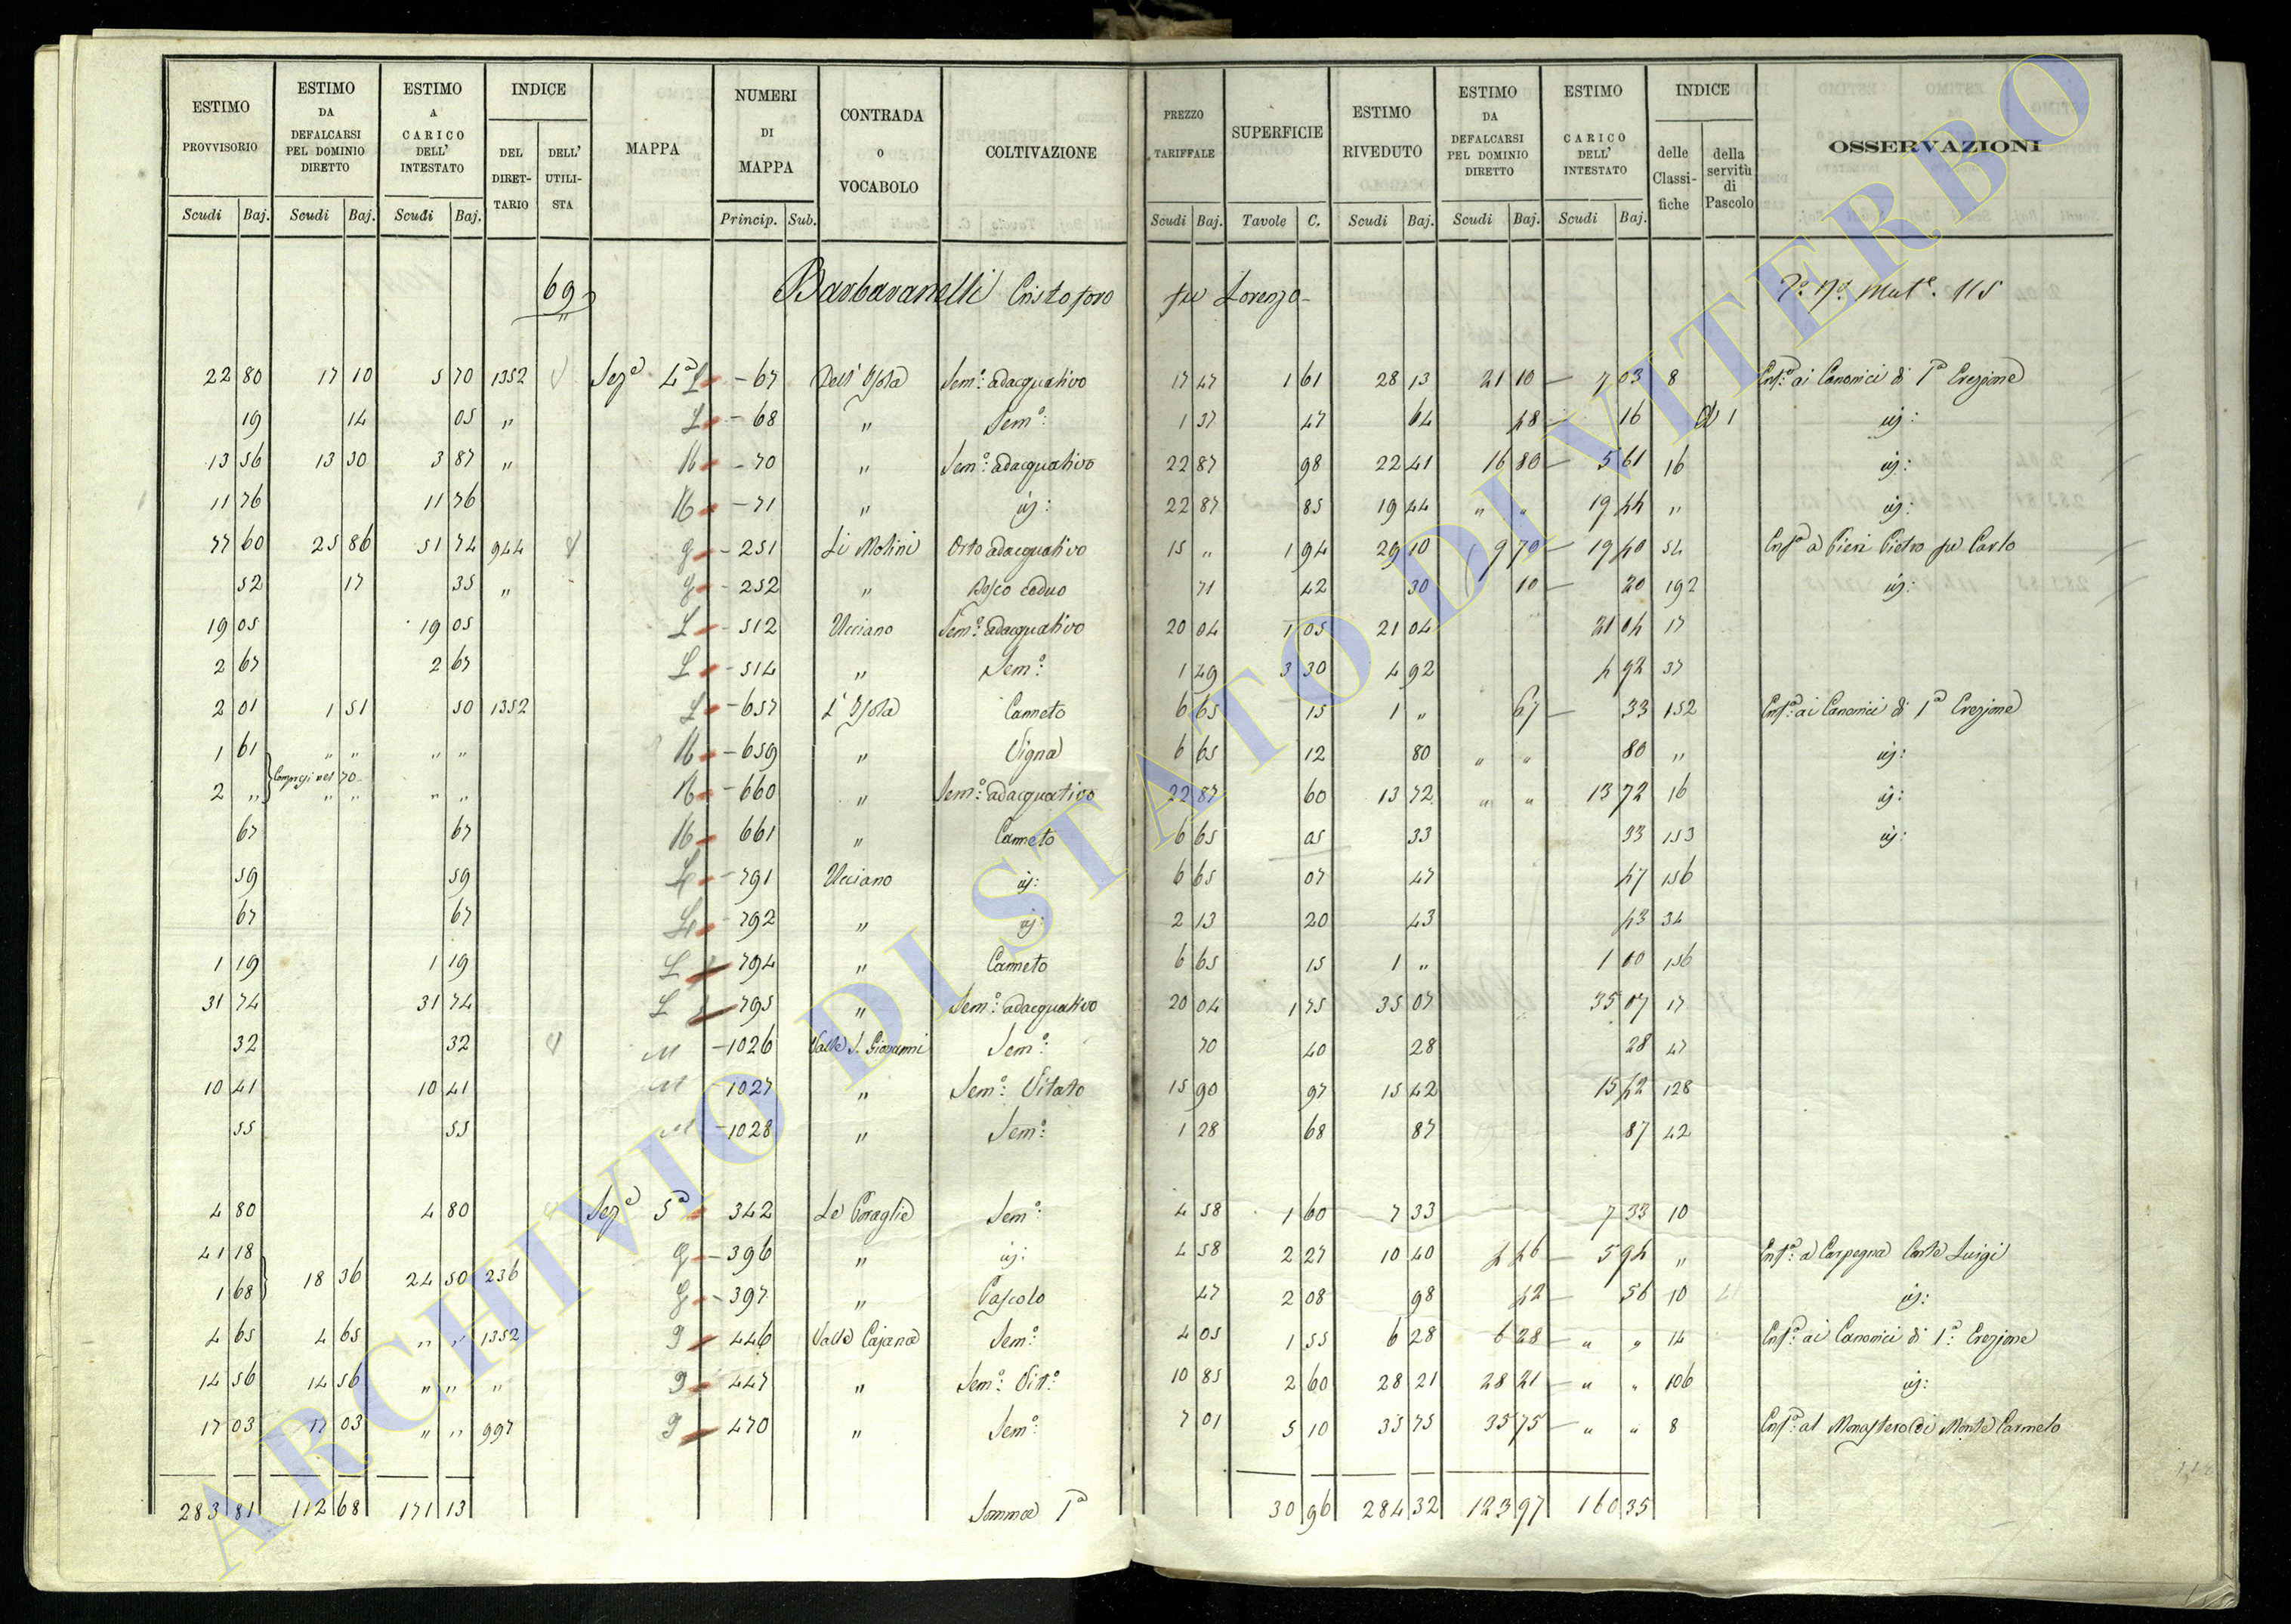 ESTIMO PROVVISORIO | ESTIMO DA DEFALCARSI PEL DOMINIO DIRETTO | ESTIMO A CARICO DELL' INTESTATO | INDICE DEL DIRETTARIO | DELL' UTILISTA | MAPPA | NUMERI DI MAPPA | CONTRADA O VOCABOLO | COLTIVAZIONE | PREZZO TARIFFALE | SUPERFICIE | ESTIMO RIVEDUTO | ESTIMO DA DEFALCARSI PEL DOMINIO DIRETTO | ESTIMO CARICO DELL' INTESTATO | INDICE delle Classifiche | della servitù di Pascolo | OSSERVAZIONI
Scudi Baj. | Scudi Baj. | Scudi Baj. | Princip. Sub. | Scudi Baj. | Tavole C. | Scudi Baj. | Scudi Baj. | Scudi Baj.
69 Barbaranelli Cristoforo fu Lorenzo Mut.e 115
22 80 17 10 5 70 1352 Sez.e 4a L 67 Dell' Isola Sem.o: adacquativo 17 47 1 61 28 13 21 10 7 03 8 Enf.a ai Canonici di 1a Erezione
19 14 05 " L 68 " Sem.o: 1 37 47 64 48 16 1 id:
13 56 13 30 3 87 " 70 " Sem.o: adacquativo 22 87 98 22 41 16 80 5 61 16 id:
11 76 11 76 71 " id: 22 87 85 19 44 " " 19 44 " id:
77 60 25 86 51 74 944 g 251 Li Molini Orto adacquativo 15 " 1 94 29 10 9 70 19 40 54 Enf.a a Pieri Pietro fu Carlo
52 17 35 " g 252 " Bosco ceduo 71 42 30 10 20 192 id:
19 05 19 05 L 512 Ucciano Sem.o: adacquativo 20 04 1 05 21 04 21 04 17
2 67 2 67 L 514 " Sem.o: 1 49 3 30 4 92 4 92 37
2 01 1 51 50 1352 L 657 L' Isola Canneto 6 65 15 1 " 67 33 152 Enf.a ai Canonici di 1a Erezione
1 61 " " " " 659 " Vigna 6 65 12 80 " " 80 " id:
Compresi nel 70
2 " " " " " 660 " Sem.o: adacquativo 22 87 60 13 72 " " 13 72 16 id:
67 67 661 " Canneto 6 65 05 33 33 153 id:
59 59 L 791 Ucciano id: 6 65 07 47 47 156
67 67 L 792 " id: 2 13 20 43 43 34
1 19 1 19 L 794 " Canneto 6 65 15 1 " 1 00 156
31 74 31 74 L 795 " Sem.o: adacquativo 20 04 1 75 35 07 35 07 17
32 32 M 1026 Valle S. Giovanni Sem.o: 70 40 28 28 47
10 41 10 41 M 1027 " Sem.o: Vitato 15 90 97 15 42 15 42 128
55 55 M 1028 " Sem.o: 1 28 68 87 87 42
4 80 4 80 Sez.e 5a 342 Sem.o: 4 58 1 60 7 33 7 33 10
41 18 g 396 " id: 4 58 2 27 10 40 4 46 5 94 " Enf.a a Carpegna Conte Luigi
1 68 18 36 24 50 236 g 397 " Pascolo 47 2 08 98 42 56 10 id:
4 65 4 65 " " 1352 9 446 Valle Cajana Sem.o: 4 05 1 55 6 28 6 28 " " 14 Enf.a ai Canonici di 1a Erezione
14 56 14 56 " " " 9 447 " Sem.o: Vit.o: 10 85 2 60 28 21 28 21 " " 106 id:
17 03 17 03 " " 997 9 470 " Sem.o: 7 01 5 10 35 75 35 75 " " 8 Enf.a al Monastero di Monte Carmelo
283 81 112 68 171 13 Somma 1a 30 96 284 32 123 97 160 35
ARCHIVIO DI STATO DI VITERBO